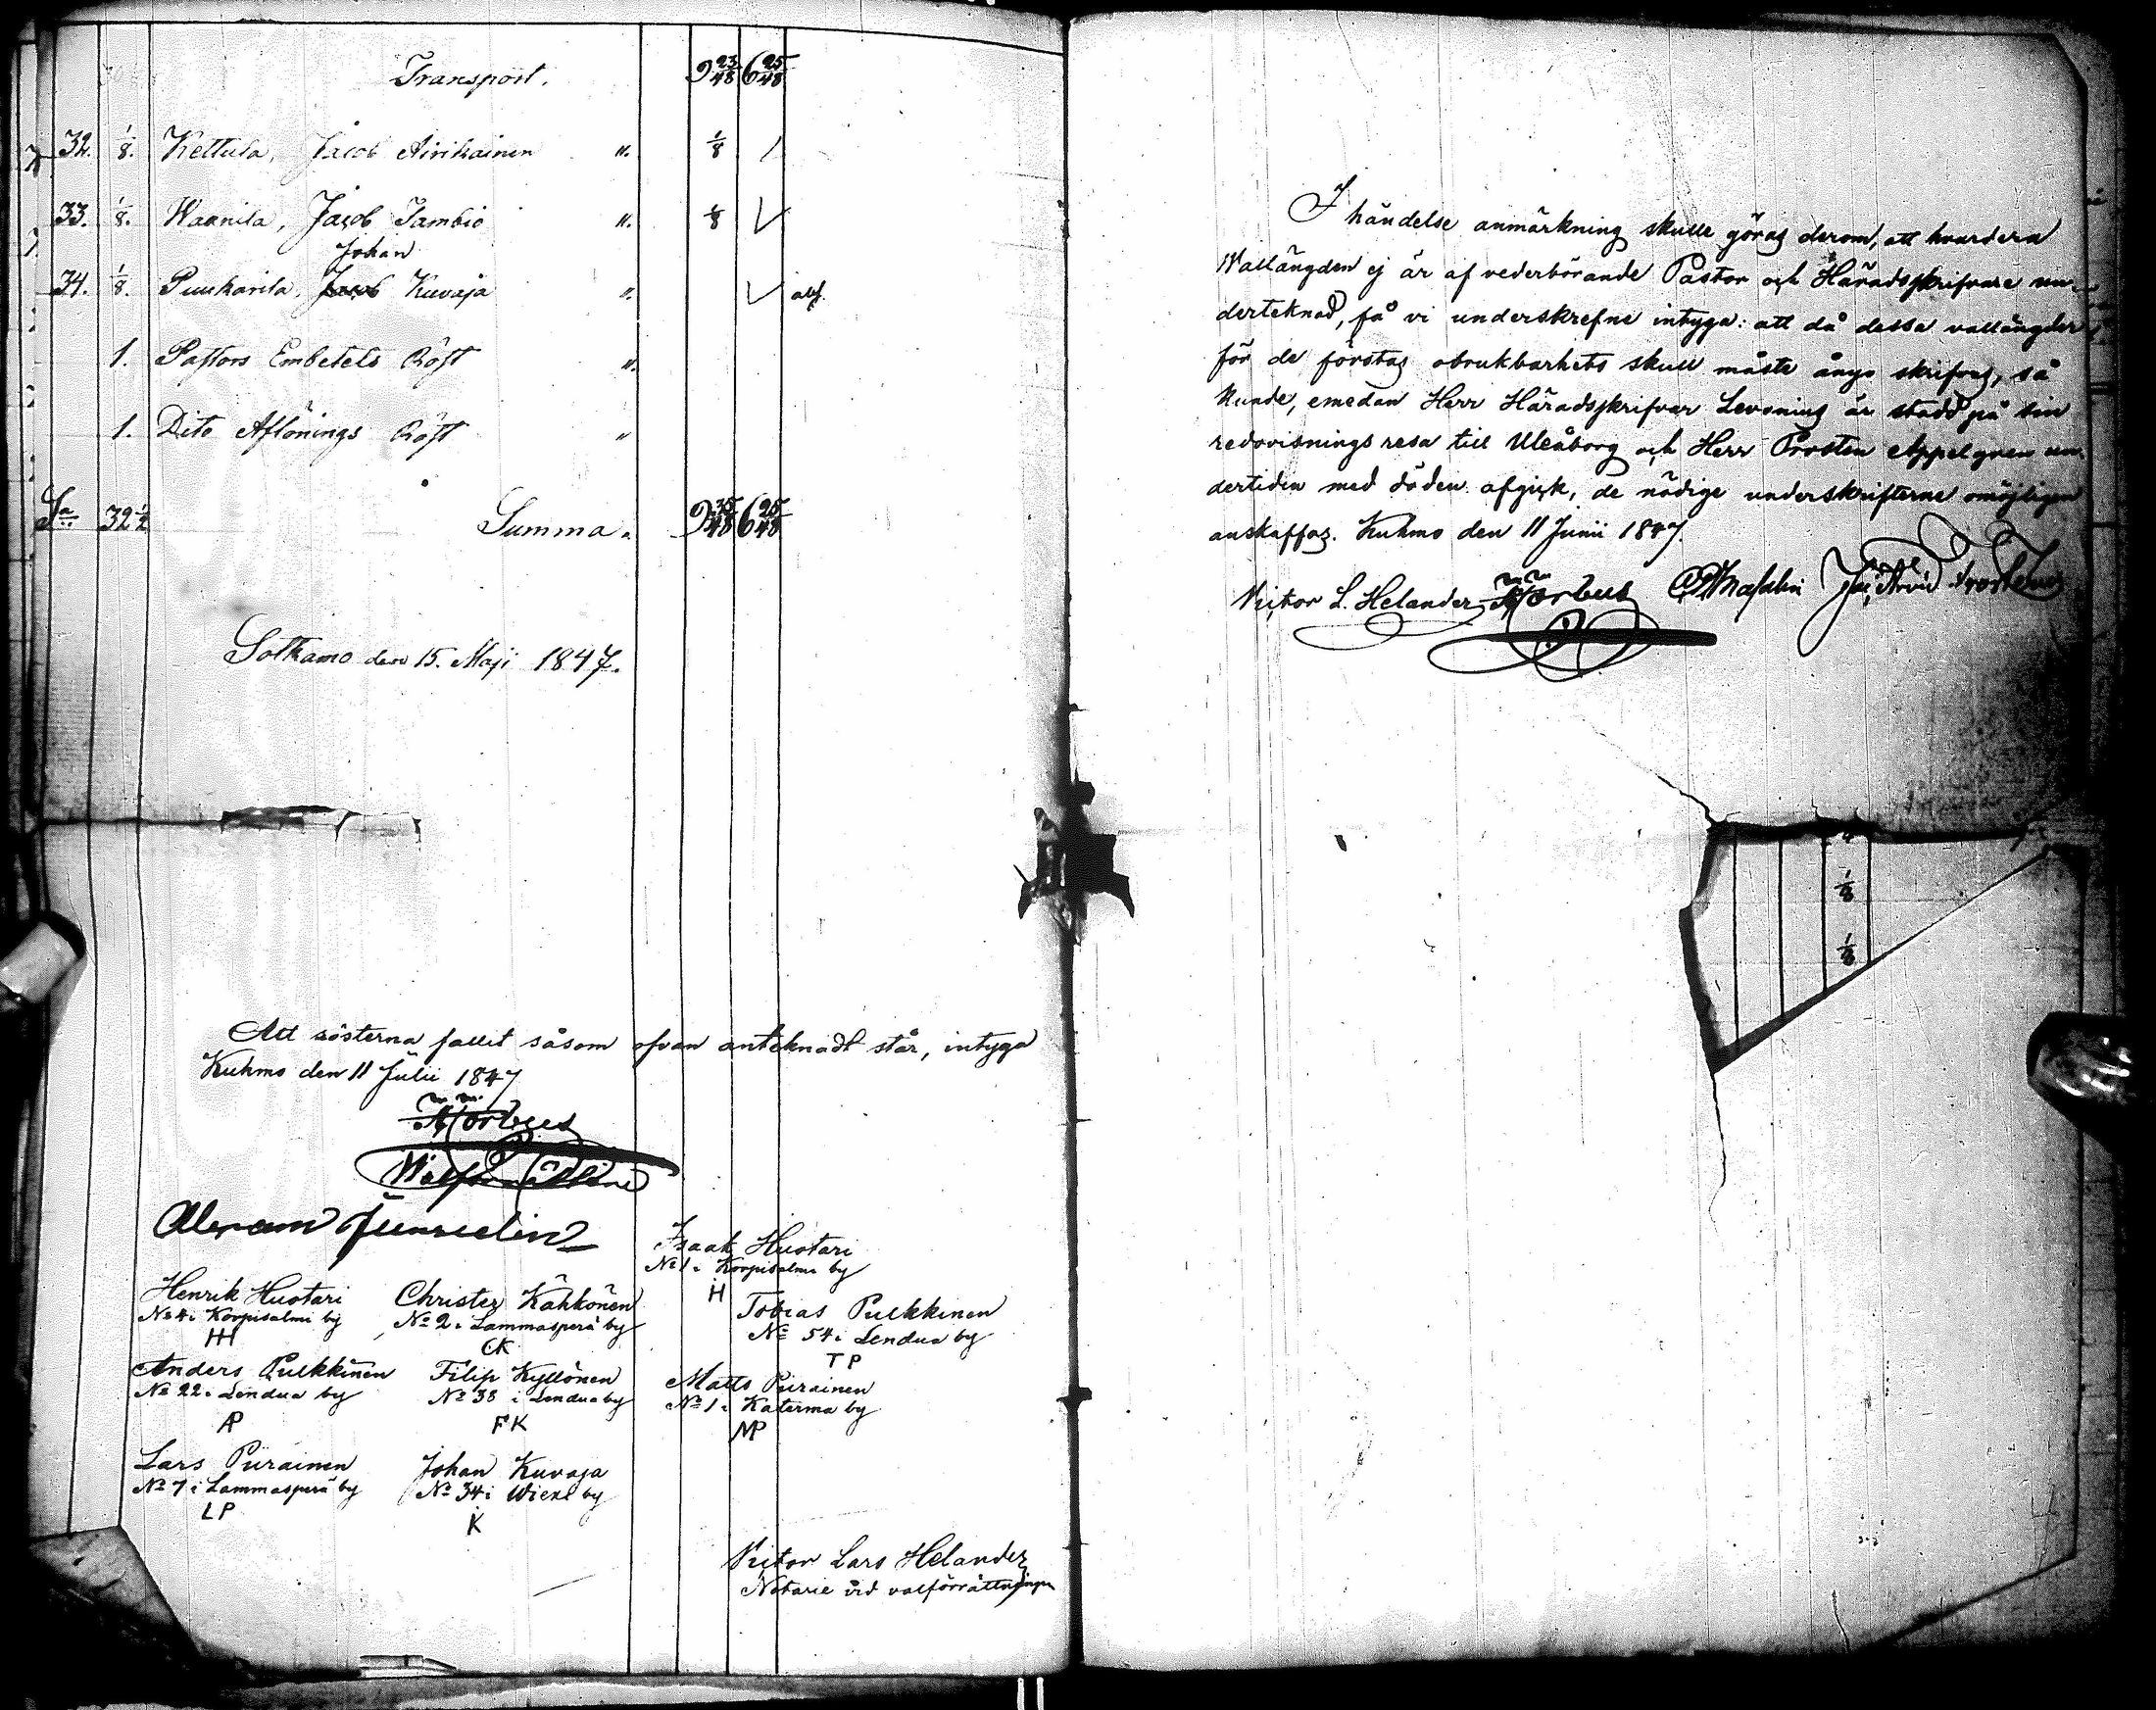 Transport. 9 23/48 6 25/48
32. 1/8. Kettula, Jacob Airikainen ". 1/8 /
33. 1/8. Waanila, Jacob Tambio ". 1/8 √
Johan
34. 1/8. Puukarila, Jacob Kuvaja ". √
1. Pastors Embetets Röst ".
1. Dito Aflönings Röst "
Sa 32 1/2 Summa. 9 35/48 6 25/48
Sotkamo den 15. Maji 1847.
Att rösterna fallit såsom ofvan antecknadt står, intyga
Kuhmo den 11 Julii 1847
Abram
Isaak Huotari
No 1 i Korpisalmi by
IH
Henrik Huotari Christer Kähkönen
No 4 i Korpisalmi by No 2 i Lammasperä by
HH CK
Tobias Pulkkinen
No 54 i Lendua by
TP
Anders Pulkkinen Filip Kyllönen
No 22 i Lendua by No 38 i Lendua by
AP FK
Matts Piirainen
No 1 i Katerma by
MP
Lars Piirainen Johan Kuvaja
No 7 i Lammasperä by No 34 i Wiexi by
LP K
Victor Lars Helander
Notarie vid valförrättningen
I händelse anmärkning skulle göras derom, att hvardera
Wallängden ej är af vederbörande Pastor och Häradsskrifvare un-
dertecknad, få vi underskrefne intyga: att då dessa vallängder
för de förstas obrukbarhets skull måste ånyo skrifvas, så
kunde, emedan Herr Häradsskrifvar Levoning är stadd på sin
redovisnings resa till Uleåborg och Herr Prosten Appelgren un-
dertiden med döden afgick, de nödige underskrifterne omöjligen
anskaffas. Kuhmo den 11 Junii 1847.
Victor L. Helander
1/8
1/8